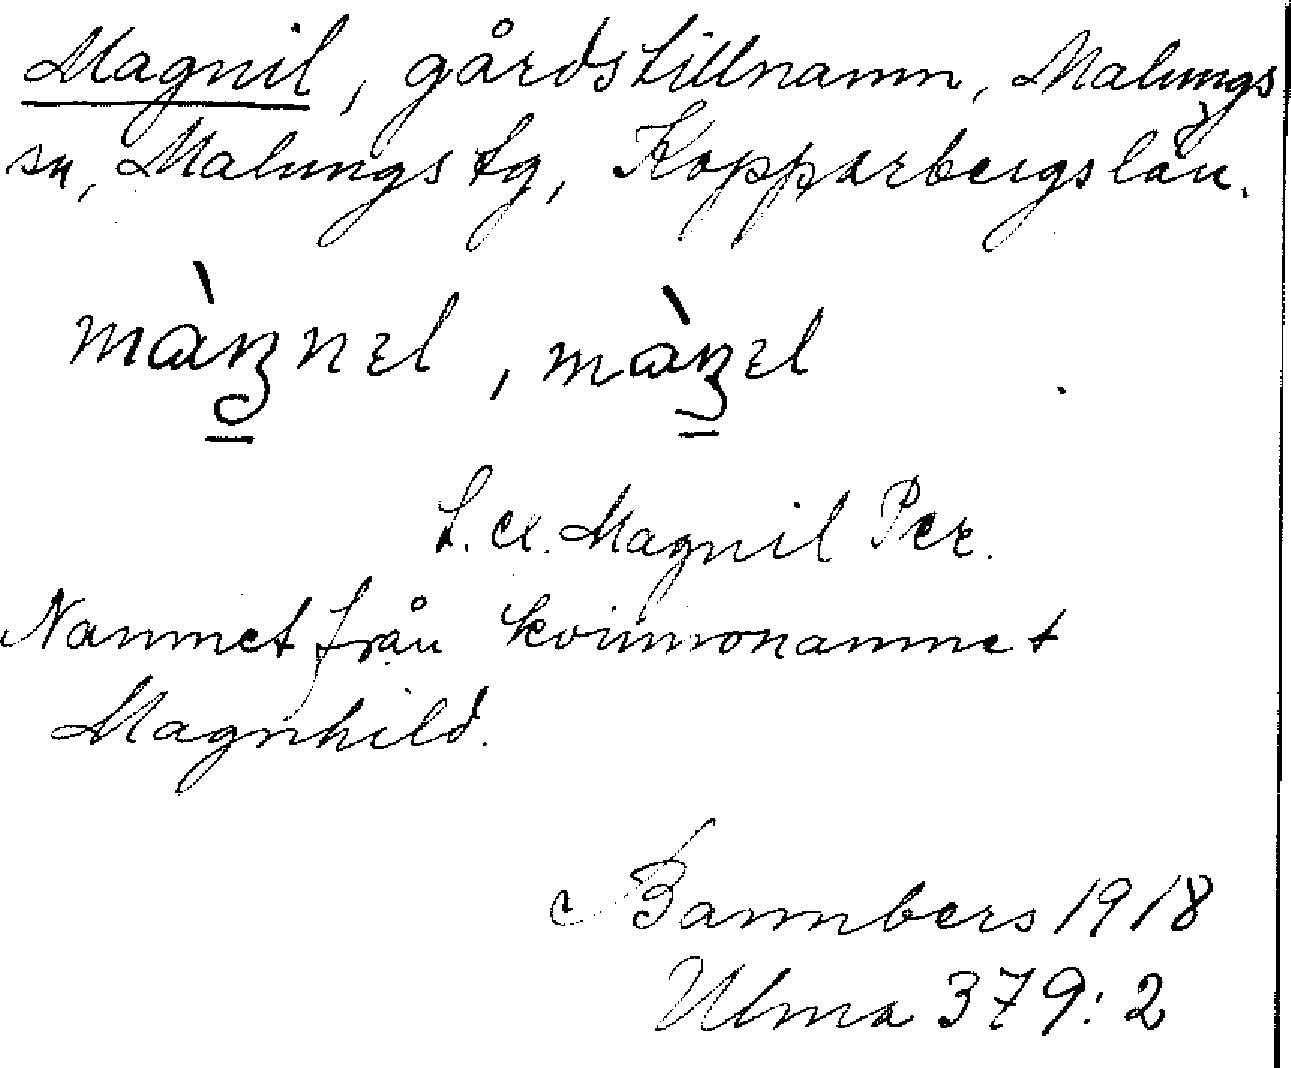 Magnil, gårdstillnamn, Malungs
sn, Malungs tg, Kopparbergs län.
t. ex. Magnil Per.
Namnet från kvinnonamnet
Magnhild.
Bannbers 1918
Ulma 379:2